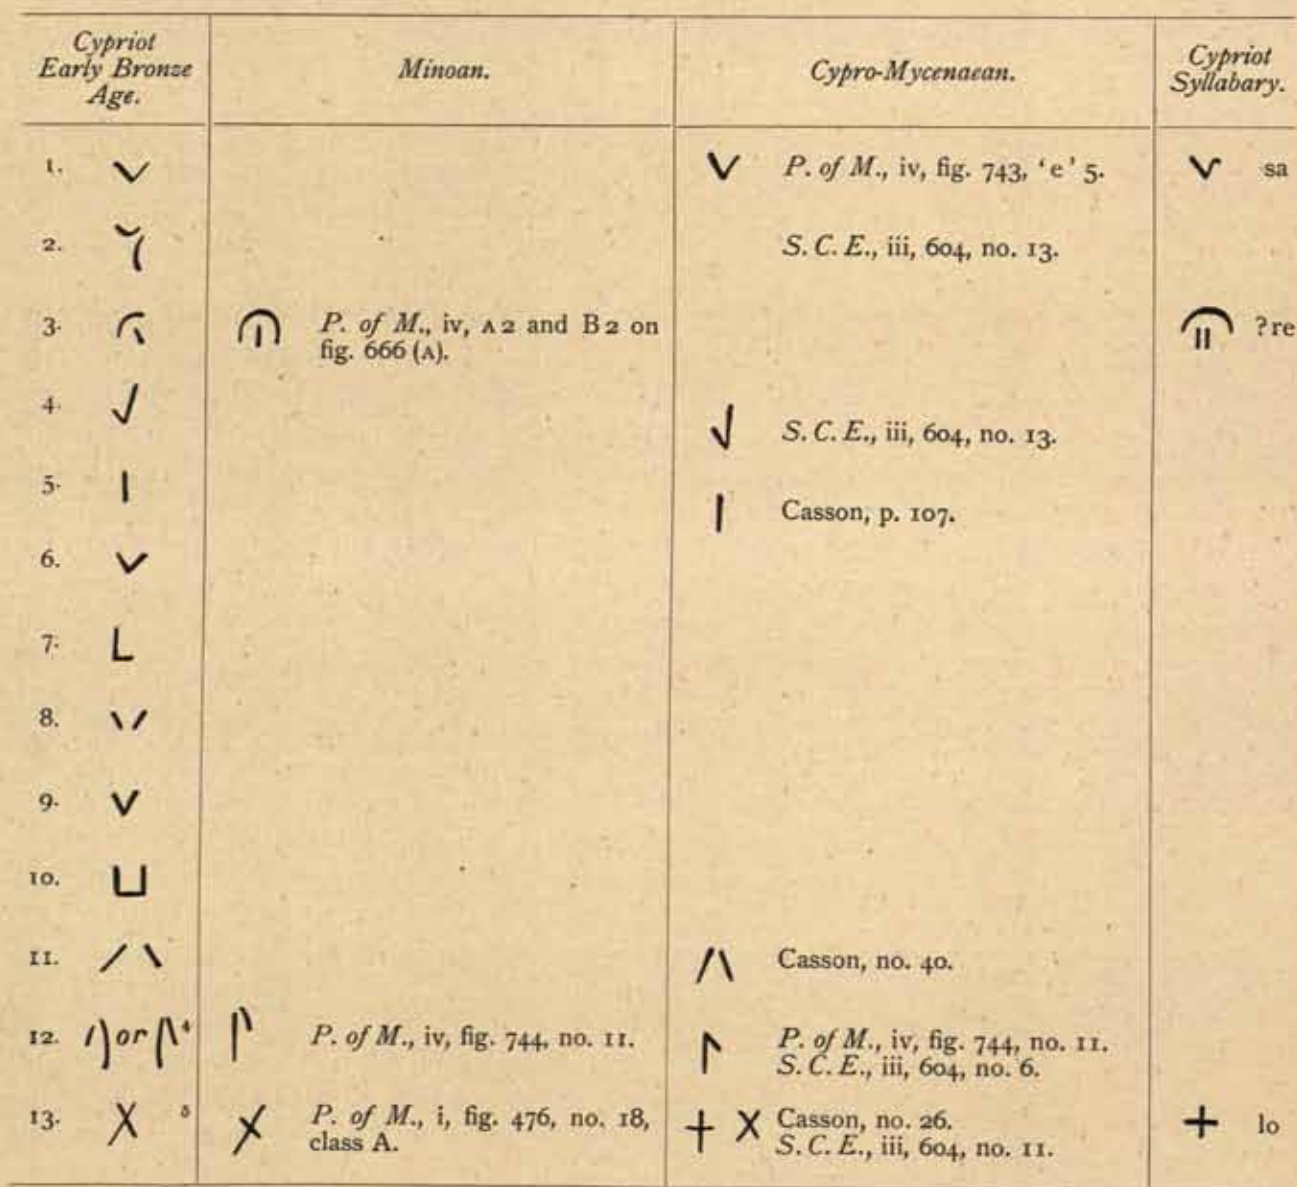 Cypriot Early Bronze Age. Minoan. Cypro-Mycenaean. Cypriot Syllabary.
1. P. of M., iv, fig. 743, ‘e’ 5. sa
2. S. C. E., iii, 604, no. 13.
3. P. of M., iv, A 2 and B 2 on ?re
fig. 666 (A).
4. S. C. E., iii, 604, no. 13.
5. Casson, p. 107.
6.
7.
8.
9.
10.
11. Casson, no. 40.
12. or 4 P. of M., iv, fig. 744, no. 11. P. of M., iv, fig. 744, no. 11.
S. C. E., iii, 604, no. 6.
13. 5 P. of M., i, fig. 476, no. 18, Casson, no. 26. lo
class A. S. C. E., iii, 604, no. 11.